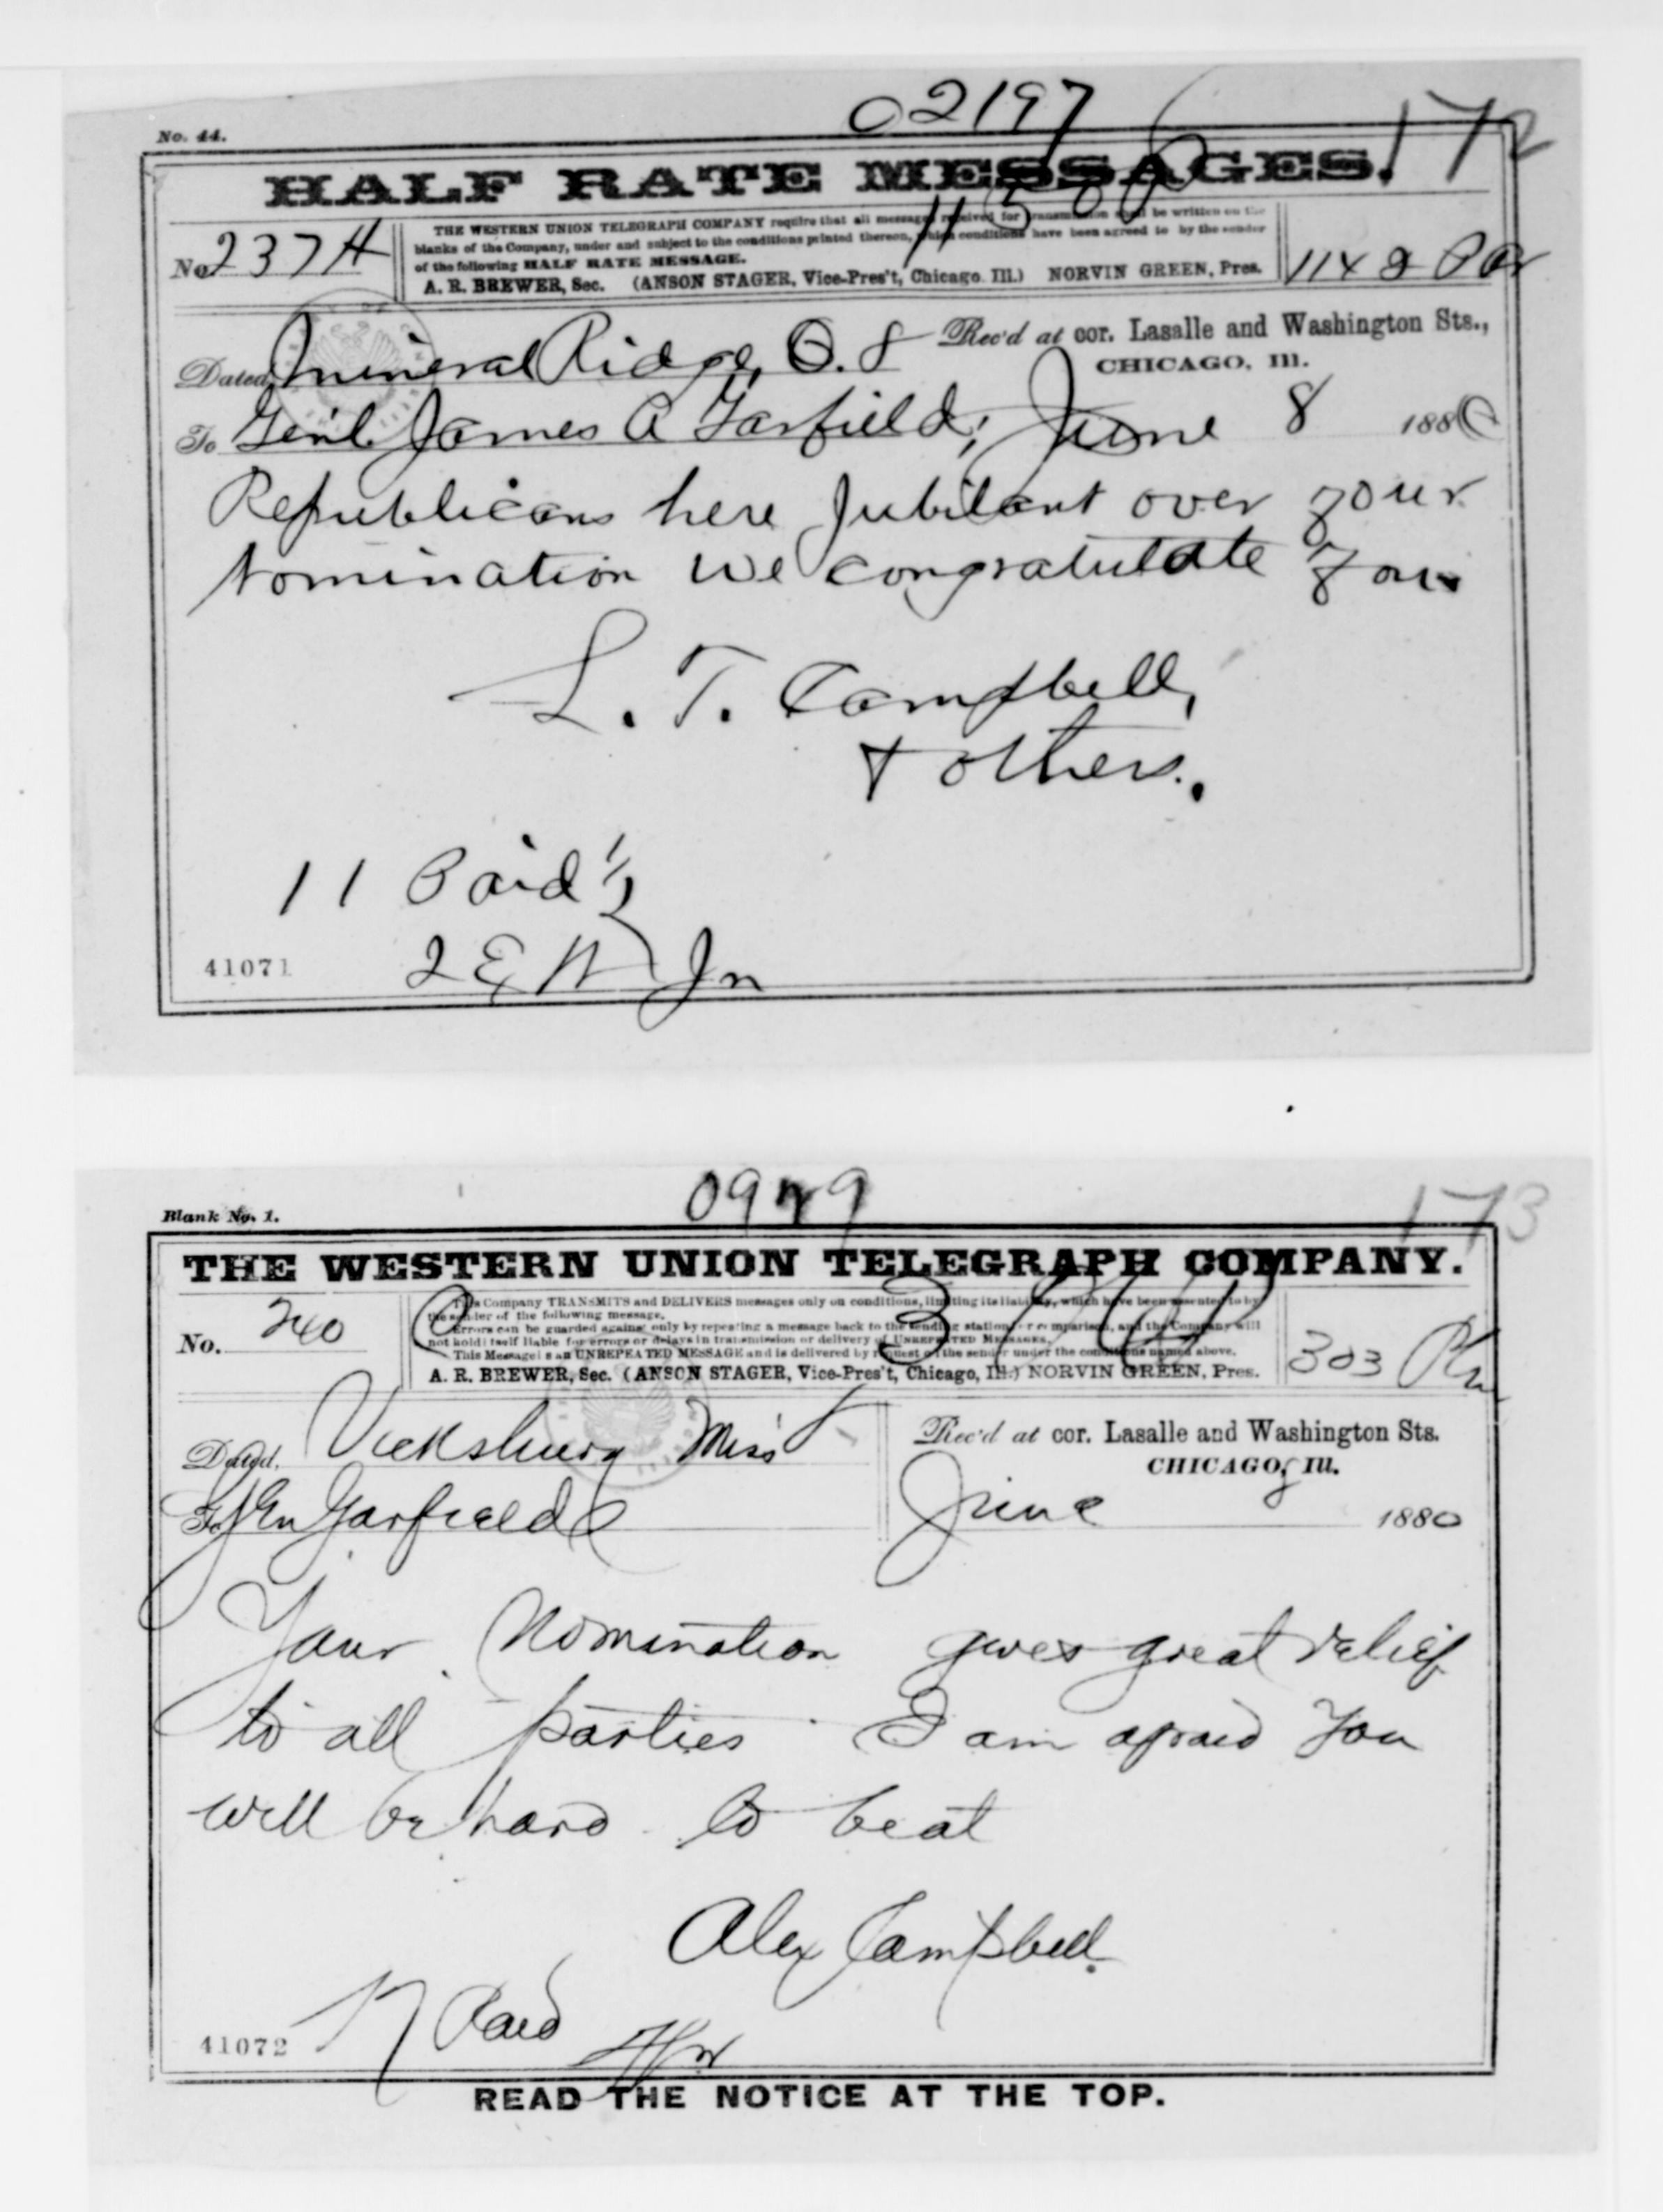 02197
172
No. 44.
HALF RATE MESSAGES.
11500
No 237 H
THE WESTERN UNION TELEGRAPH COMPANY require that all messages received for transmission shall be written on the
blanks of the Company, under and subject to the conditions printed thereon, which conditions have been agreed to by the sender
of the following HALF RATE MESSAGE.
A. R. BREWER, Sec. (ANSON STAGER, Vice-Pres't, Chicago Ill.) NORVIN GREEN, Pres.
Dated Mineral Ridge, O. 8
Rec'd at cor. Lasalle and Washington Sts.,
CHICAGO, Ill.
To Genl James A Garfield, June 8 1880
Republicans here Jubilant over your
Nomination We congratulate You
L. T. Campbell,
& others.
11 Paid ½
41071
0979
173
Blank No. 1.
THE WESTERN UNION TELEGRAPH COMPANY.
No. 240
This Company TRANSMITS and DELIVERS messages only on conditions, limiting its liability, which have been assented to by
the sender of the following message.
Errors can be guarded against only by repeating a message back to the sending station for comparison, and the Company will
not hold itself liable for errors or delays in transmission or delivery of UNREPEATED MESSAGES.
This Message is an UNREPEATED MESSAGE and is delivered by request of the sender under the conditions named above.
A. R. BREWER, Sec. (ANSON STAGER, Vice-Pres't, Chicago, Ill.) NORVIN GREEN, Pres.
303
Dated. Vicksburg Miss 8
Rec'd at cor. Lasalle and Washington Sts.
CHICAGO, Ill.
To Gen Garfield
June 8 1880
Your Nomination gives great relief
to all parties I am afraid You
will be hard to beat
Alex Campbell.
17 Paid
41072
READ THE NOTICE AT THE TOP.